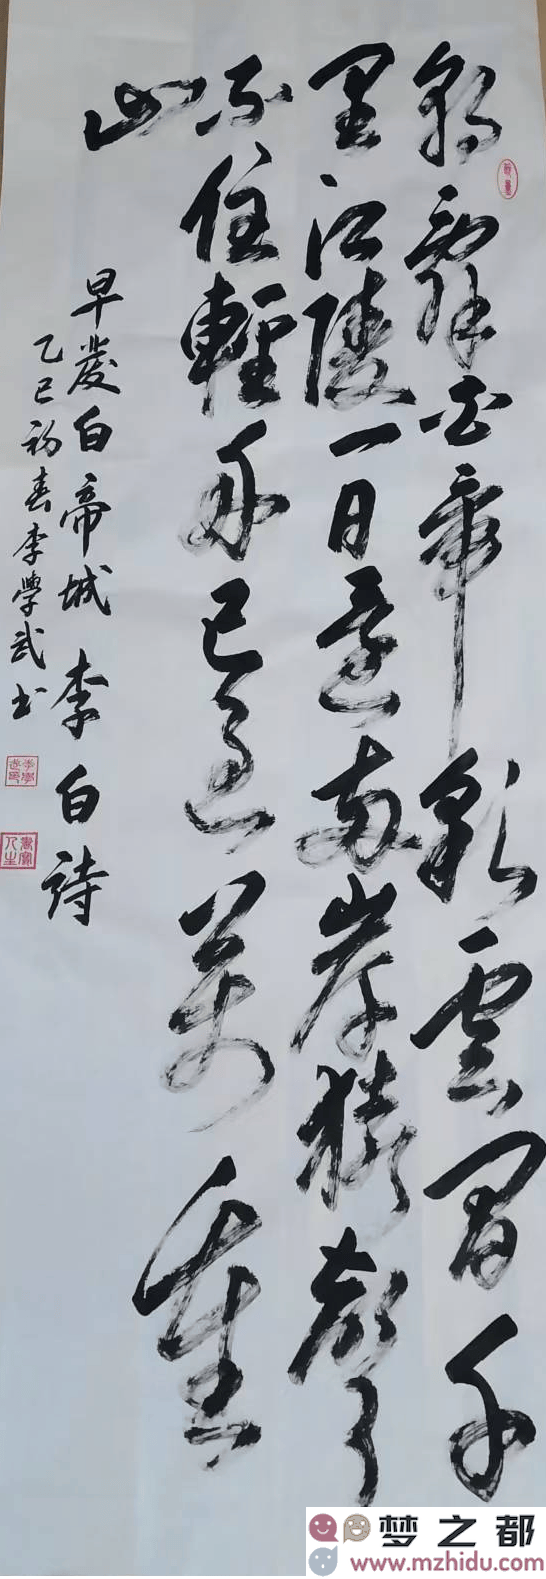 朝辭白帝彩雲間千
里江陵一日還兩岸猿聲啼
不住輕舟已過萬重
山
早發白帝城 李白詩
乙巳初春李學武书
梦之都
www.mzhidu.com